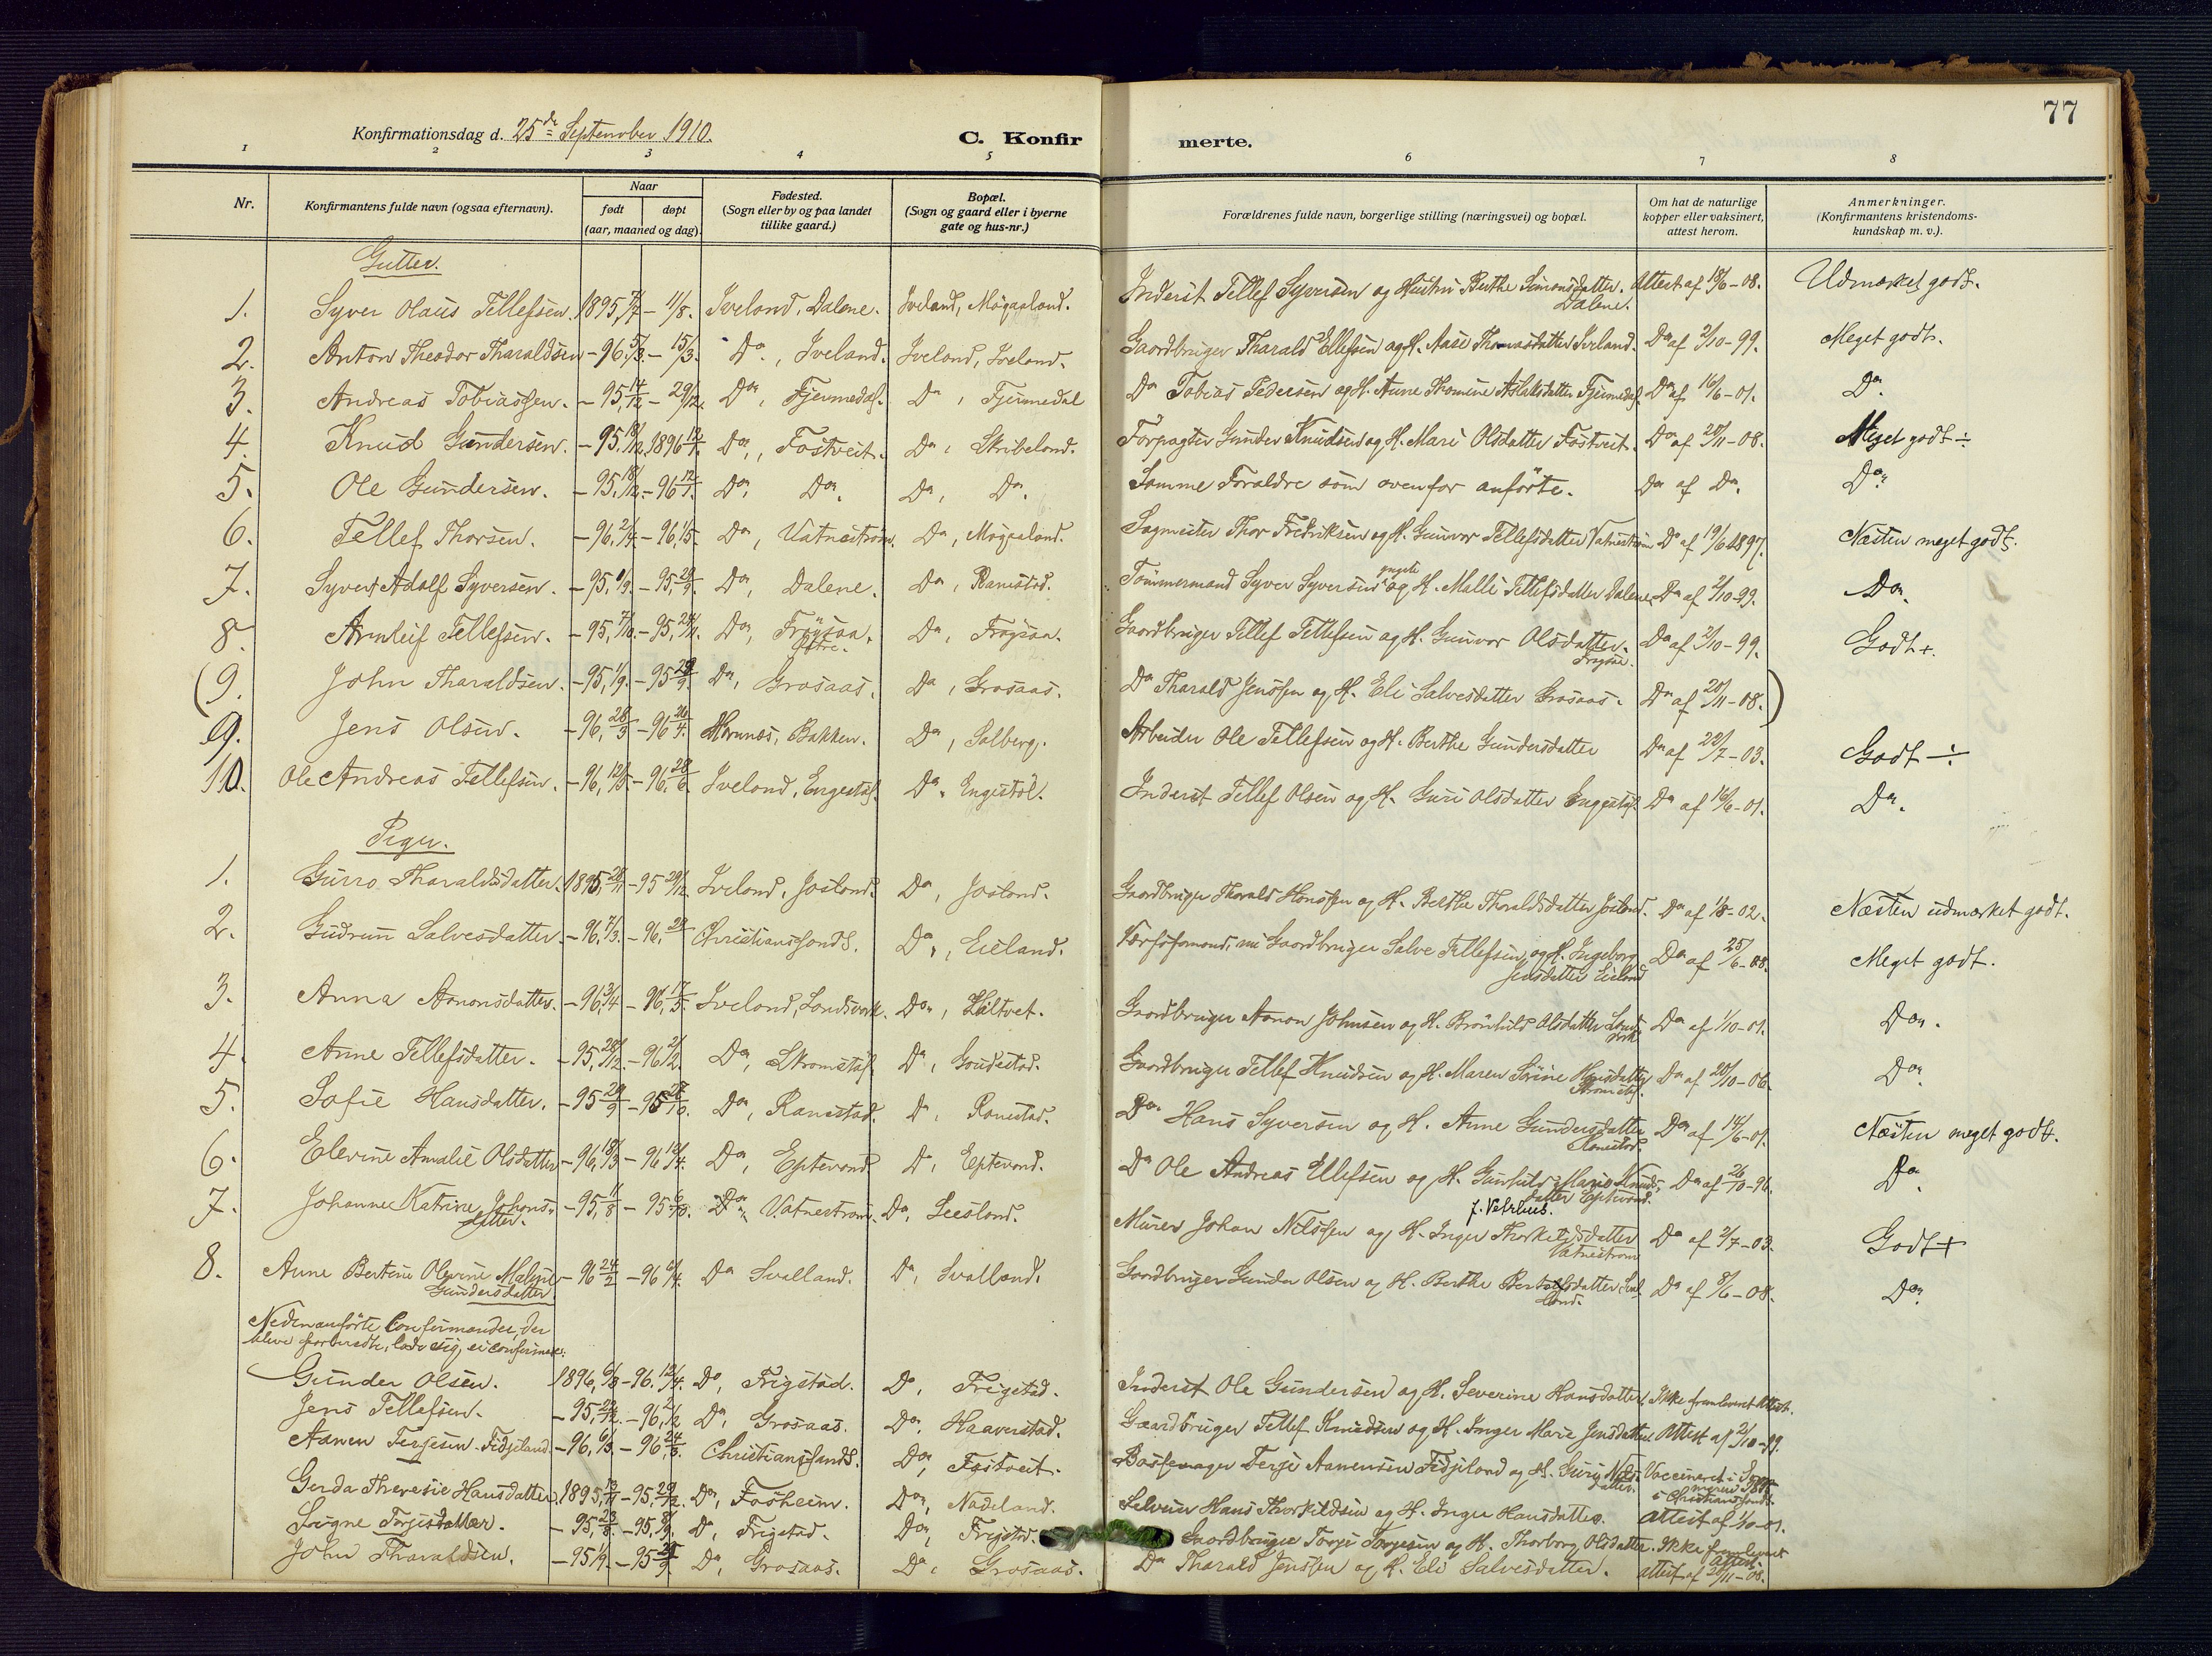 77
Konfirmationsdag d. 25de September 1910. C. Konfir merte.
1 2 3 4 5 6 7 8
Nr. Konfirmantens fulde navn (ogsaa efternavn). Naar født døpt (aar, maaned og dag). Fødested. (Sogn eller by og paa landet tillike gaard.) Bopæl. (Sogn og gaard eller i byerne gate og hus-nr.) Forældrenes fulde navn, borgerlige stilling (næringsvei) og bopæl. Om hat de naturlige kopper eller vaksinert, attest herom. Anmerkninger. (Konfirmantens kristendoms-kundskap m. v.).
Gutter.
1. Syver Olaus Tellefsen. 1895, 7/7 – 11/8. Iveland, Dalene. Iveland, Mögaaland. Inderst Tellef Syversen og Hustru Berthe Simonsdatter. Dalene. Attest af 18/6–08. Udmærket godt.
2. Anton Theodor Tharaldsen – 96, 5/3. – 15/3. Do., Iveland. Iveland, Iveland. Gaardbruger Tharald Ellefsen og H. Aase Thomasdatter Iveland. Do af 2/10–99. Meget godt.
3. Andreas Tobiassen. – 95, 14/12 – 29/12. Do, Fjermedal. Do, Fjermedal Do Tobias Pedersen og H. Anne Thomine Aslaksdatter Fjermedal. Do af 16/6–01. Do.
4. Knud Gundersen. – 95. 18/12. 1896 12/1. Do, Fostveit. Do, Skribeland. Forpagter Gunder Knudsen og H. Mari Olsdatter Fostveit. Do af 20/11–08. Meget godt ÷
5. Ole Gundersen. – 95. 18/12. – 96 12/1. Do, Do. Do, Do. Samme Foraldre som ovenfor anförte. Do af Do. Do.
6. Tellef Thorsen. – 96, 2/4. – 96, 1/5. Do, Vatneström. Do, Mögaaland. Sagmester Thor Fredriksen og H. Gunvor Tellefsdatter Vatneström Do af 19/6 1897. Næsten meget godt.
7. Syvert Adolf Syversen. – 95, 1/9. – 95, 29/9. Do, Dalene. Do, Ramstad. Tömmermand Syver Syversen yngste og H. Malli Tellefsdatter Dalene. Do af 2/10–99. Do.
8. Arnleif Tellefsen. – 95, 7/10. – 95, 24/11. Do, Fröysaa. Do, Fröysaa. Gaardbruger Tellef Tellefsen og H. Gunvor Olsdatter. Fröysaa. Do af 2/10–99. Godt +.
(9. John Tharaldsen. – 95, 1/9. – 95 29/9. Do, Grosaas. Do, Grosaas. Do Tharald Jenssen og H. Eli Salvesdatter Grosaas. Do af 20/11–08.)
9. Jens Olsen. – 96, 28/3 – 96 26/4. Hornnes, Bakken. Do, Solberg. Arbeider Ole Tellefsen og H. Berthe Gundersdatter Do af 22/7–03. Godt ÷
10. Ole Andreas Tellefsen. – 96, 12/5. – 96. 28/6. Iveland, Engestøl. Do. Engestøl. Inderst Tellef Olsen og H. Guri Olsdatter Engestøl. Do af 16/6–01. Do.
Piger.
1. Gurro Tharaldsdatter. 1895, 28/11 – 95 29/12. Iveland, Josland. Do, Josland. Gaardbruger Tharald Hanssen og H. Berthe Tharaldsdatter Josland. Do af 1/8–02. Næsten udmærket godt.
2. Gudrun Salvesdatter – 96, 7/3. – 96, 29 Christianssands. Do, Eieland. nu Gaardbruger Salve Tellefsen, og H. Ingeborg Jensdatter Eieland Do af 25/6–08. Meget godt.
3. Anna Aanonsdatter. – 96, 3/4 – 96, 17/5. Iveland, Landsverk. Do, Hiltvet. Gaardbruger Aanon Johnsen og H. Brönhild Olsdatter Landsverk. Do af 1/10–01. Do.
4. Anne Tellefsdatter. – 95, 28/12. – 96 2/2. Do, Skromstøl Do, Goudestad. Gaardbruger Tellef Knudsen og H. Maren Serine Hansdatter Do af 20/10–06. Do.
5. Sofie Hansdatter. – 95 20/9 – 95 27/10. Do, Ranestad. Do, Ranestad. Do Hans Syversen og H. Anne Gundersdatter Ranestad. Do af 14/6–01. Næsten meget godt.
6. Elevine Amalie Olsdatter – 96, 18/3 – 96 12/4. Do, Eptevand. Do, Eptevand. Do Ole Andreas Ellefsen og H. Gunhild Marie Knudsdatter Eptevand. Do af 26/10–96. Do.
7. Johanne Katrine Johansdatter. – 95, 11/8 – 95 6/10. Do, Vatnestrøm. Do, Leesland. Murer Johan Nilssen og H. Inger Thorkildsdatter f. Vehrhus. Vatnestrøm Do af 2/7–03. Godt +
8. Anne Bertine Olevine Malene Gundersdatter – 96 24/2 – 96 6/4. Do Svalland. Do, Svalland. Gaardbruger Gunder Olsen og H. Berthe Bertelsdatter Svalland. Do af 8/6–08. Do.
Nedenanförte Confirmander, der bleve forberedte, lode sig ei confirmere:
Gunder Olsen. 1896, 6/3 – 96. 12/4. Do, Frigstad. Do, Frigstad. Inderst Ole Gundersen og H. Severine Hansdatter. Ikke fremleveret Attest.
Jens Tellefsen. – 95, 22/12. – 96, 2/2 Do, Grosaas. Do. Haaverstad. Gaardbruger Tellef Knudsen og H. Inger Marie Jensdatter. Attest af 2/10–99.
Aanen Terjesen Fidjeland. – 96, 6/3. – 96, 24/5. Christianssands. Do, Fostveit. Terje Aanensen Fidjeland og H. Guri Nilsdatter. Vaccineret i Christianssands.
Gerda Theresie Hansdatter. 1895, 13/11 – 95, 29/12. Do, Fosheim. Do, Nadeland. Selveier Hans Thorkildsen og H. Inger Hansdatter. Attest af 1/10–01.
Signe Torjesdatter. – 95, 23/8 – 95, 8/9. Do, Frigstad. Do, Frigstad. Gaardbruger Torje Torjesen og H. Thorborg Olsdatter. Ikke fremleveret Attest.
John Tharaldsen. – 95 1/9. – 95 29/9. Do, Grosaas. Do, Grosaas. Do Tharald Jenssen og H. Eli Salvesdatter. attest af 20/11–08.